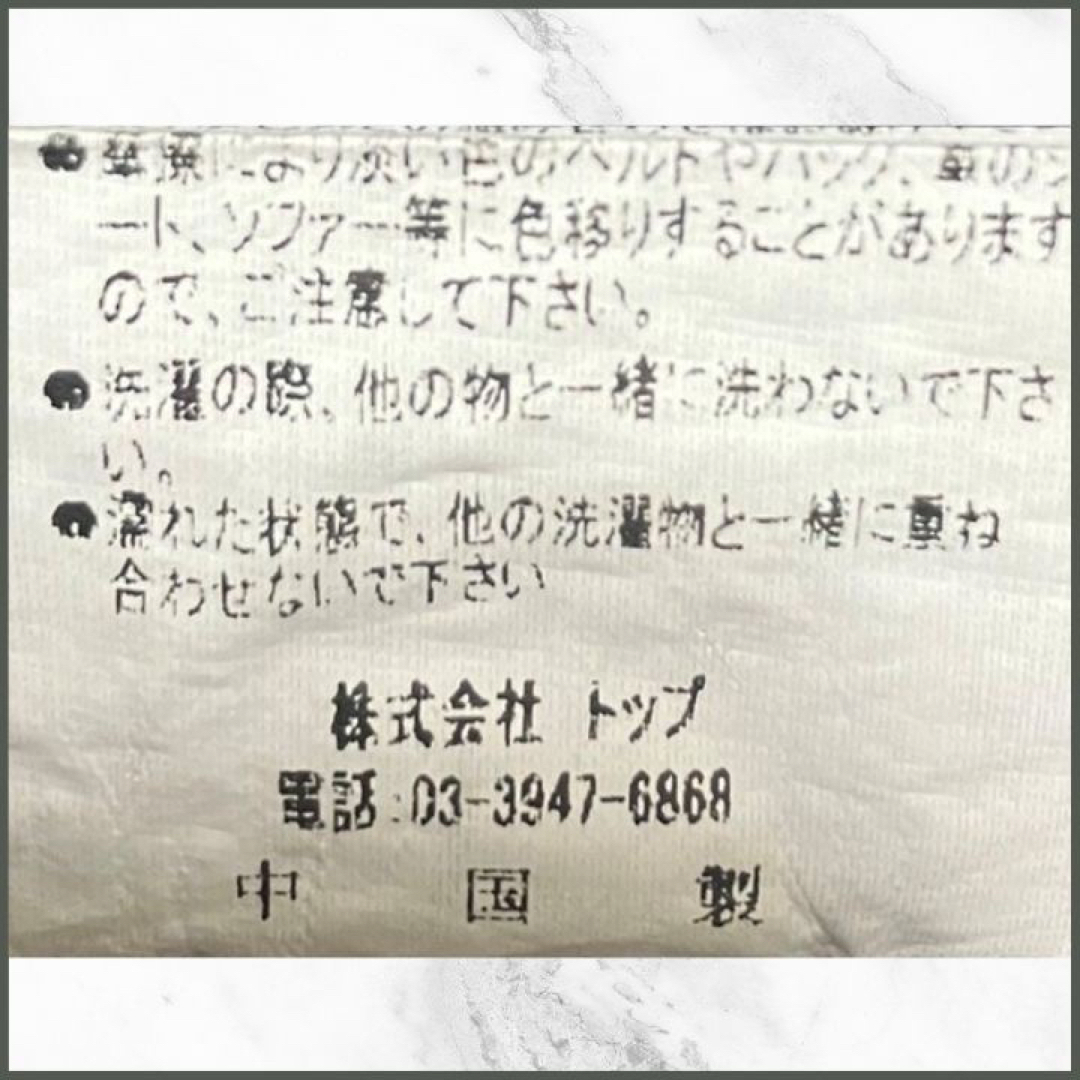 ●摩擦により淡い色のベルトやバッグ、車のシ
ート、ソファー等に色移りすることがあります
ので、ご注意して下さい。
●洗濯の際、他の物と一緒に洗わないで下さ
い。
●濡れた状態で、他の洗濯物と一緒に重ね
合わせないで下さい
株式会社 トップ
電話:03-3947-6868
中 国 製